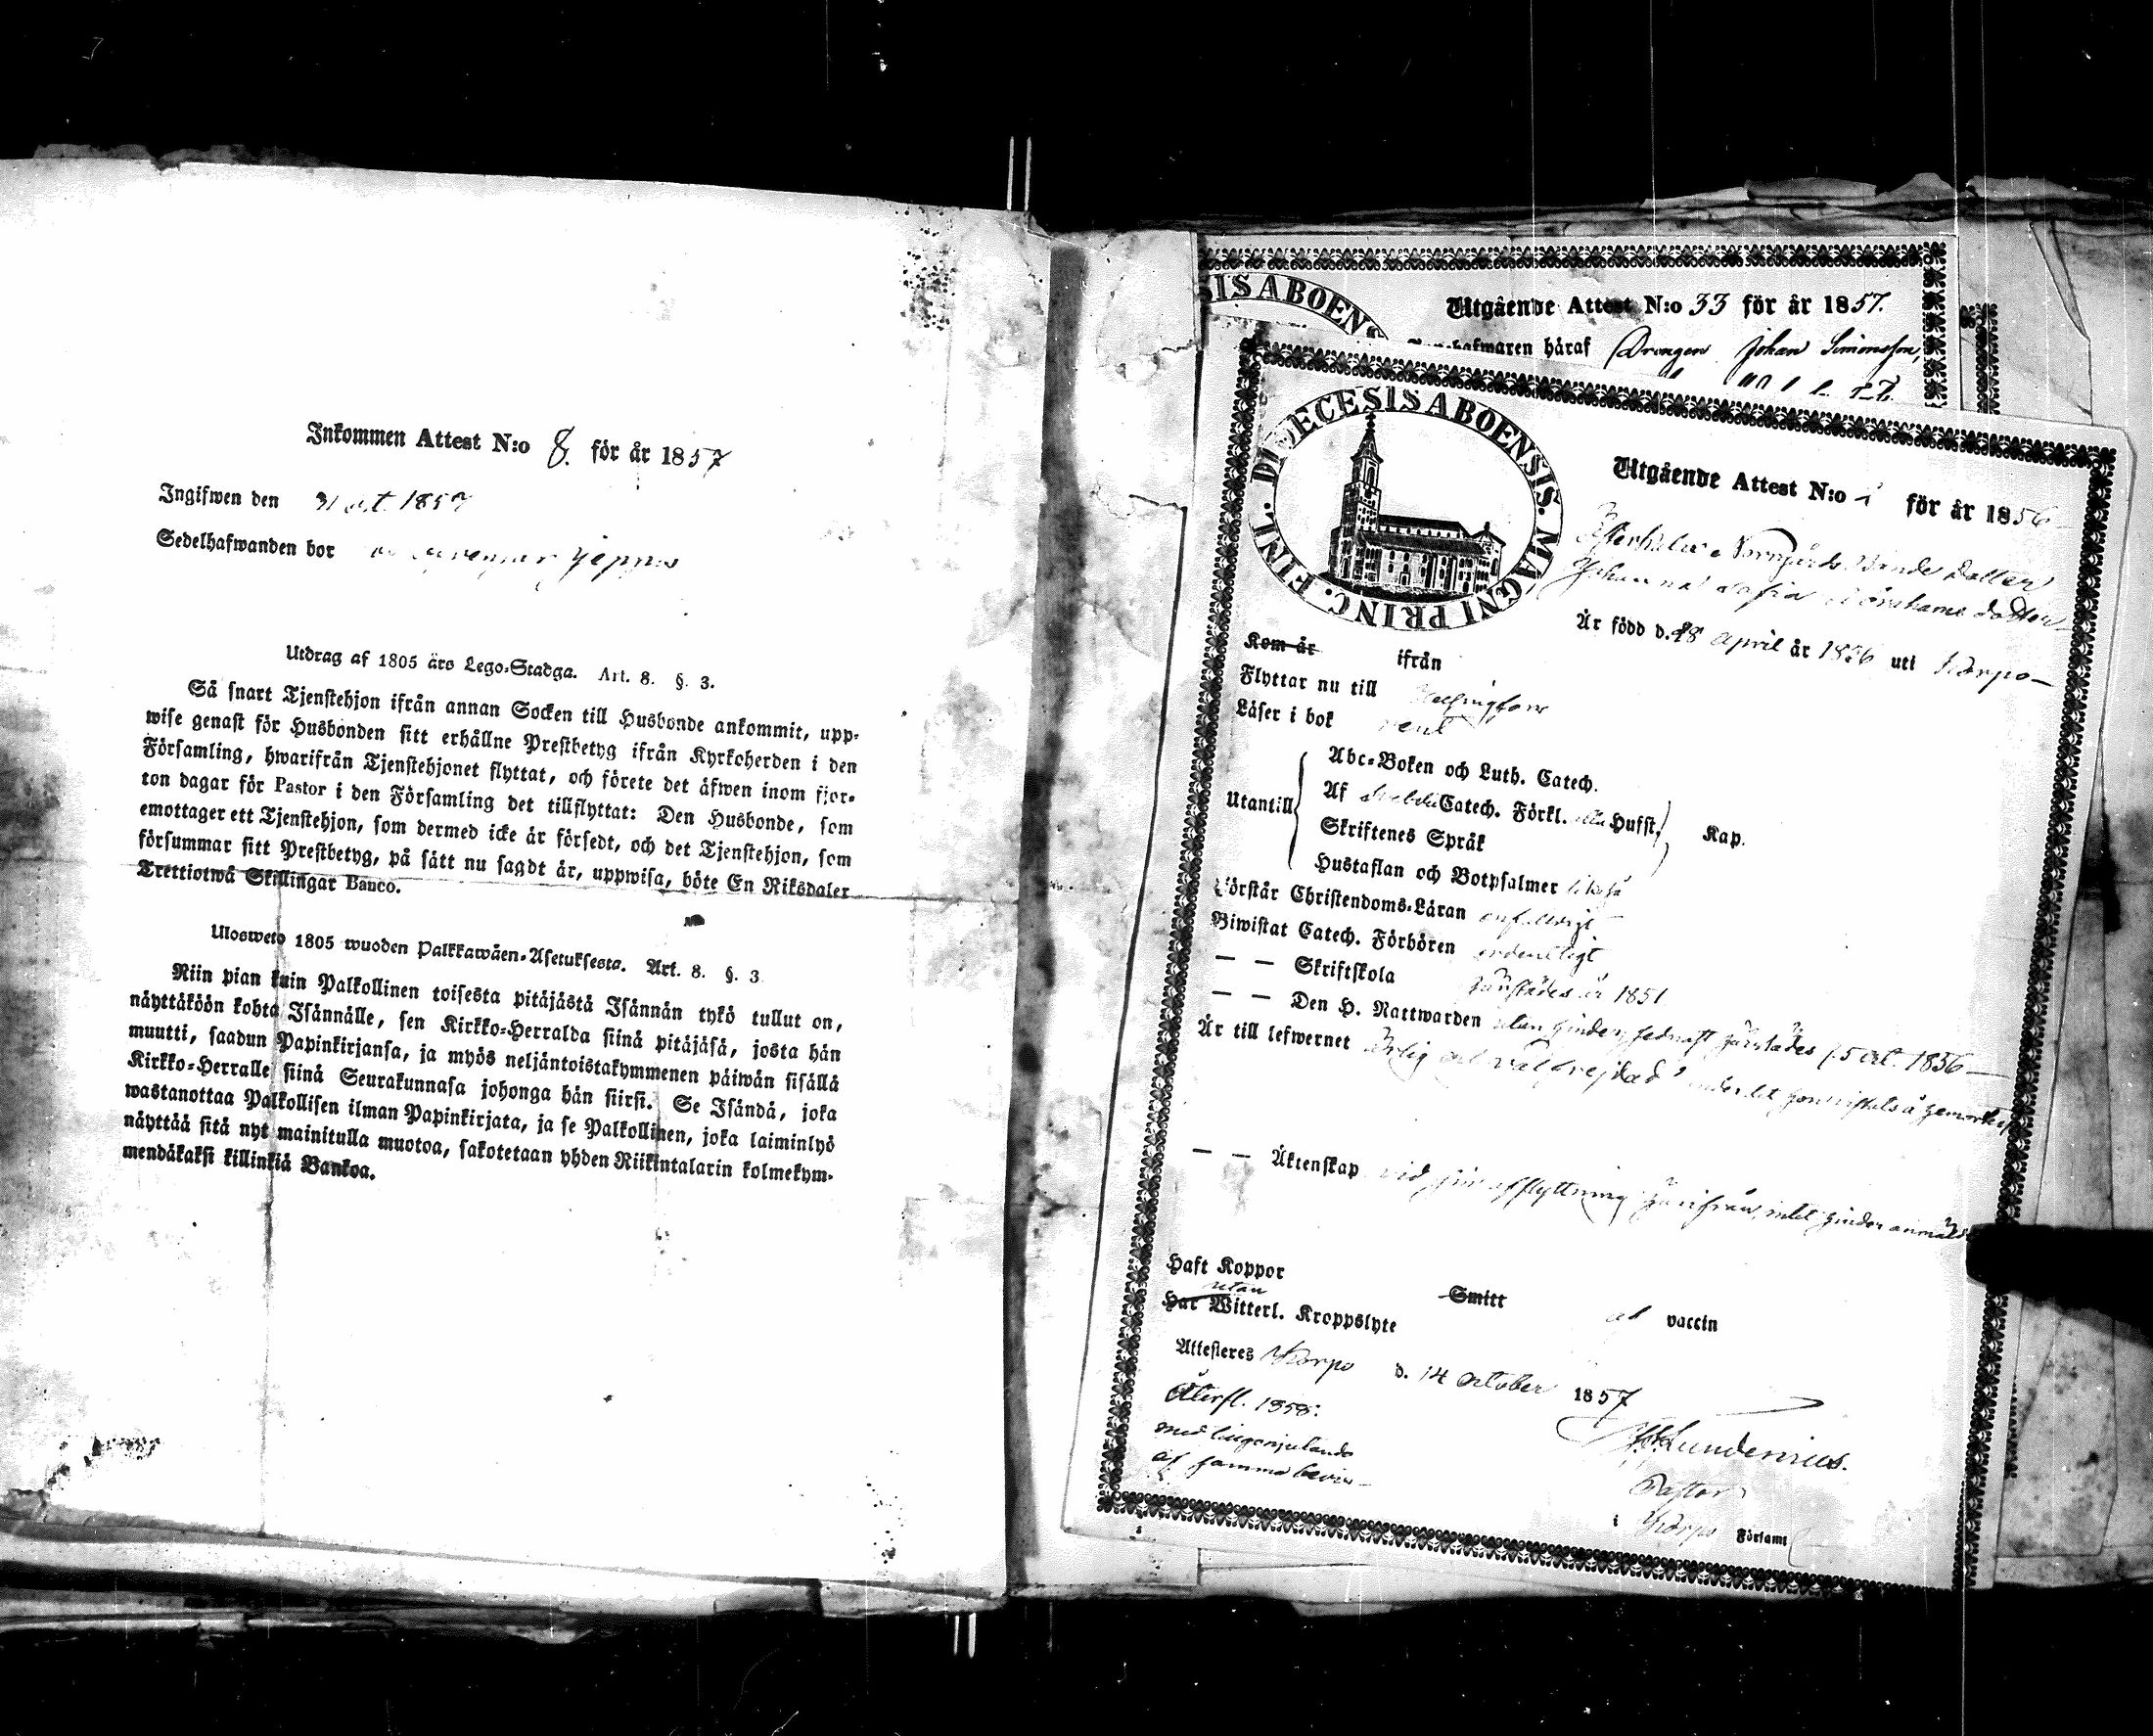 Inkommen Attest N:o 8. för år 1857
Ingifwen den 1857
Sedelhafwanden bor Jeppas
Utdrag af 1805 års Lego-Stadga. Art. 8. §. 3.
Så snart Tjenstehjon ifrån annan Socken till Husbonde ankommit, upp-
wise genast för Husbonden sitt erhållne Prestbetyg ifrån Kyrkoherden i den
Församling, hwarifrån Tjenstehjonet flyttat, och förete det äfwen inom fjor-
ton dagar för Pastor i den Församling det tillflyttat: Den Husbonde, som
emottager ett Tjenstehjon, som dermed icke är försedt, och det Tjenstehjon, som
försummar sitt Prestbetyg, på sätt nu sagdt är, uppwisa, böte En Riksdaler
Trettiotwå Skillingar Banco.
Ulosweto 1805 wuoden Palkkawäen-Asetuksesta. Art. 8. §. 3
Niin pian kuin Palkollinen toisesta pitäjästä Isännän tykö tullut on,
näyttäköön kohta Isännälle, sen Kirkko-Herralda siinä pitäjäsä, josta hän
muutti, saadun Papinkirjansa, ja myös neljäntoistakymmenen päiwän sisällä
Kirkko-Herralle siinä Seurakunnasa johonga hän siirsi. Se Isändä, joka
wastanottaa Palkollisen ilman Papinkirjata, ja se Palkollinen, joka laiminlyö
näyttää sitä nyt mainitulla muotoa, sakotetaan yhden Riikintalarin kolmekym-
mendäkaksi killinkiä Bankoa.
SIS ABOENS
Utgående Attest N:o 33 för år 1857.
håraf Drengen Johan Simonsson,
DIOECESIS ABOENSIS. MAGNI PRINC. FINL.
Utgående Attest N:o för år 1856
Norrgårds Bonde Dotter
Johanna Sofia dotter
Är född d. 28 April år 1836 uti Korpo
Kom år ifrån
Flyttar nu till Helsingfors
Läser i bok rent
Utantill
Abc-Boken och Luth. Catech.
Af Svebelii Catech. Förkl. alla Hufst. Kap.
Skriftenes Språk
Hustaflan och Botpsalmer likaså
Förstår Christendoms-Läran enfaldigt
Biwistat Catech. Förhören ordentligt
— — Skriftskola härstädes år 1851
— — Den H. Nattwarden utan hinder, sednast härstädes 1856
Är till lefwernet ärlig och välfrejdad
— — Äktenskap vid härifrån, intet hinder anmäldt
Haft Koppor Smitt af vaccin
utan
Har Witterl. Kroppslyte
Attesteres Korpo d. 14 October 1857
Återfl. 1858:
af samma
Lundenius.
Pastor
i Korpo Församl